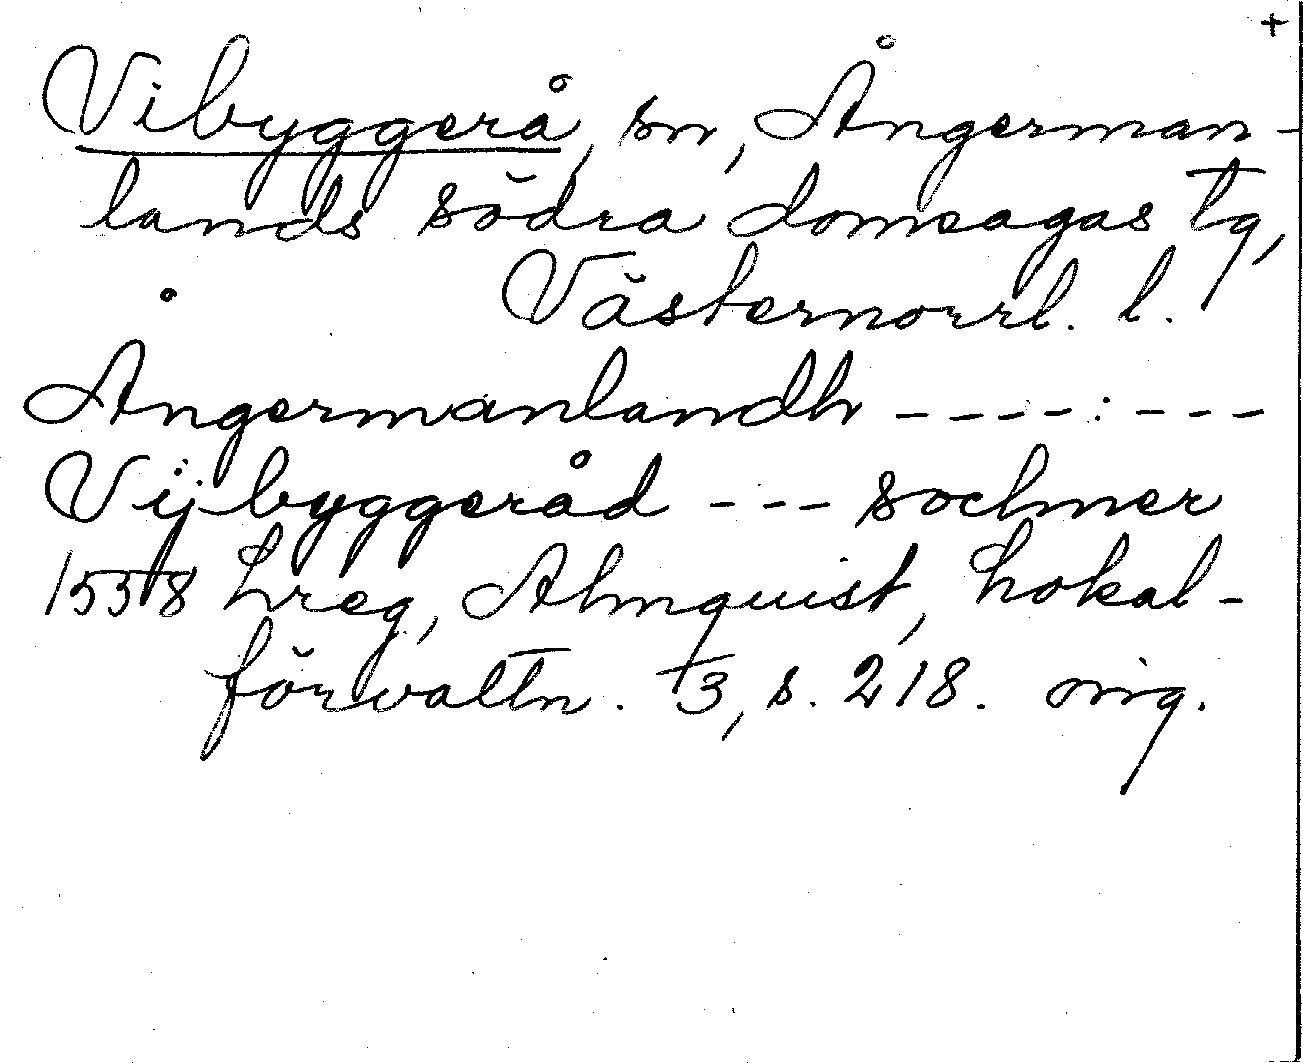 +
Vibyggerå, sn, Ångerman-
lands södra domsagas tg,
Västernorrl. l.
Ångermanlandh ----:---
Vijbyggeråd --- sochner
1558 Lreg, Almquist, Lokal-
förvaltn. 3, s. 218.